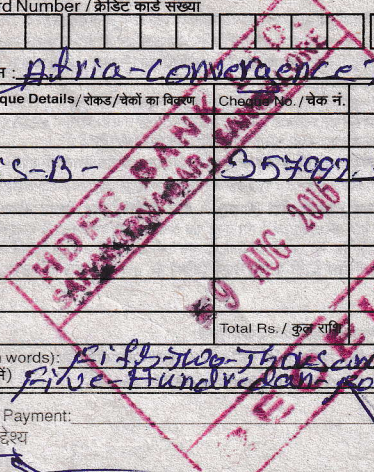 rd Number / क्रेडिट कार्ड संख्या
न : Atria-Convergence T
que Details / रोकड / चेकों का विवरण Cheque No. / चेक नं.
S-B- 357992
HDFC BANK
SAHAKARNAGAR, BANGALORE
9 AUG 2016
Total Rs. / कुल राशि
n words): Fifty-Two-Thousan
Five-Hundred
Payment:
द्देश्य